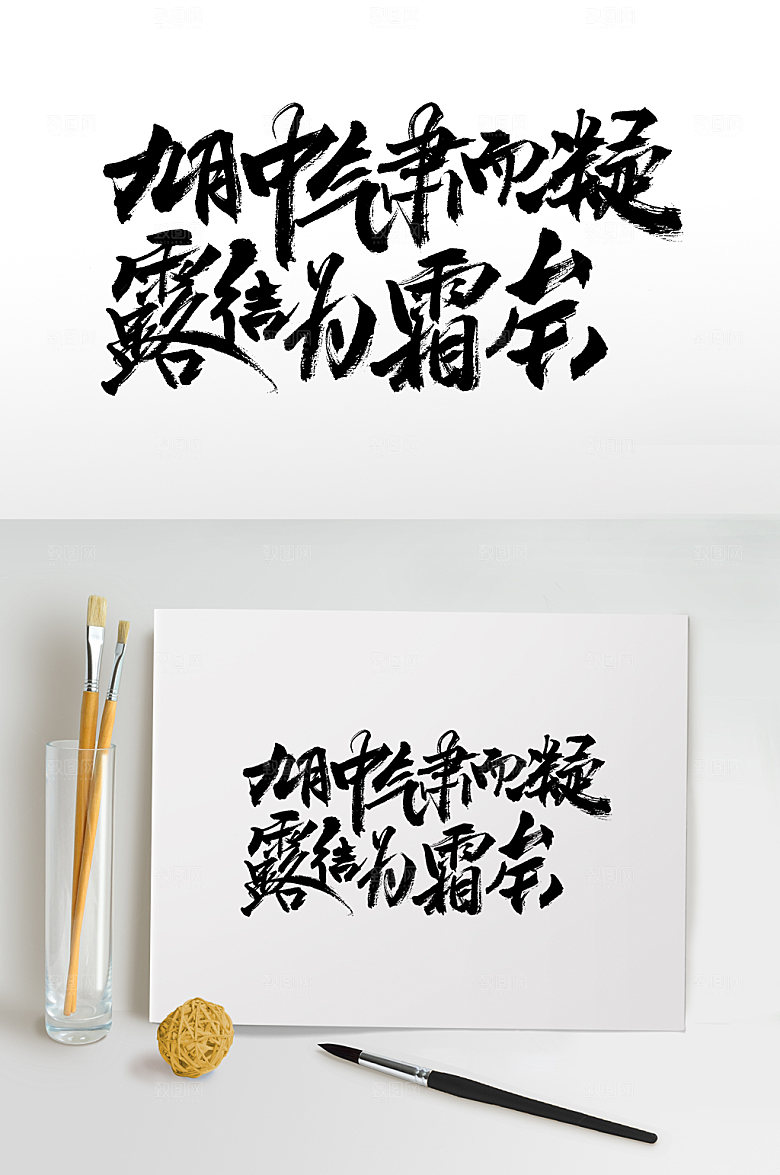 九月中气肃而凝
露结为霜矣
九月中气肃而凝
露结为霜矣